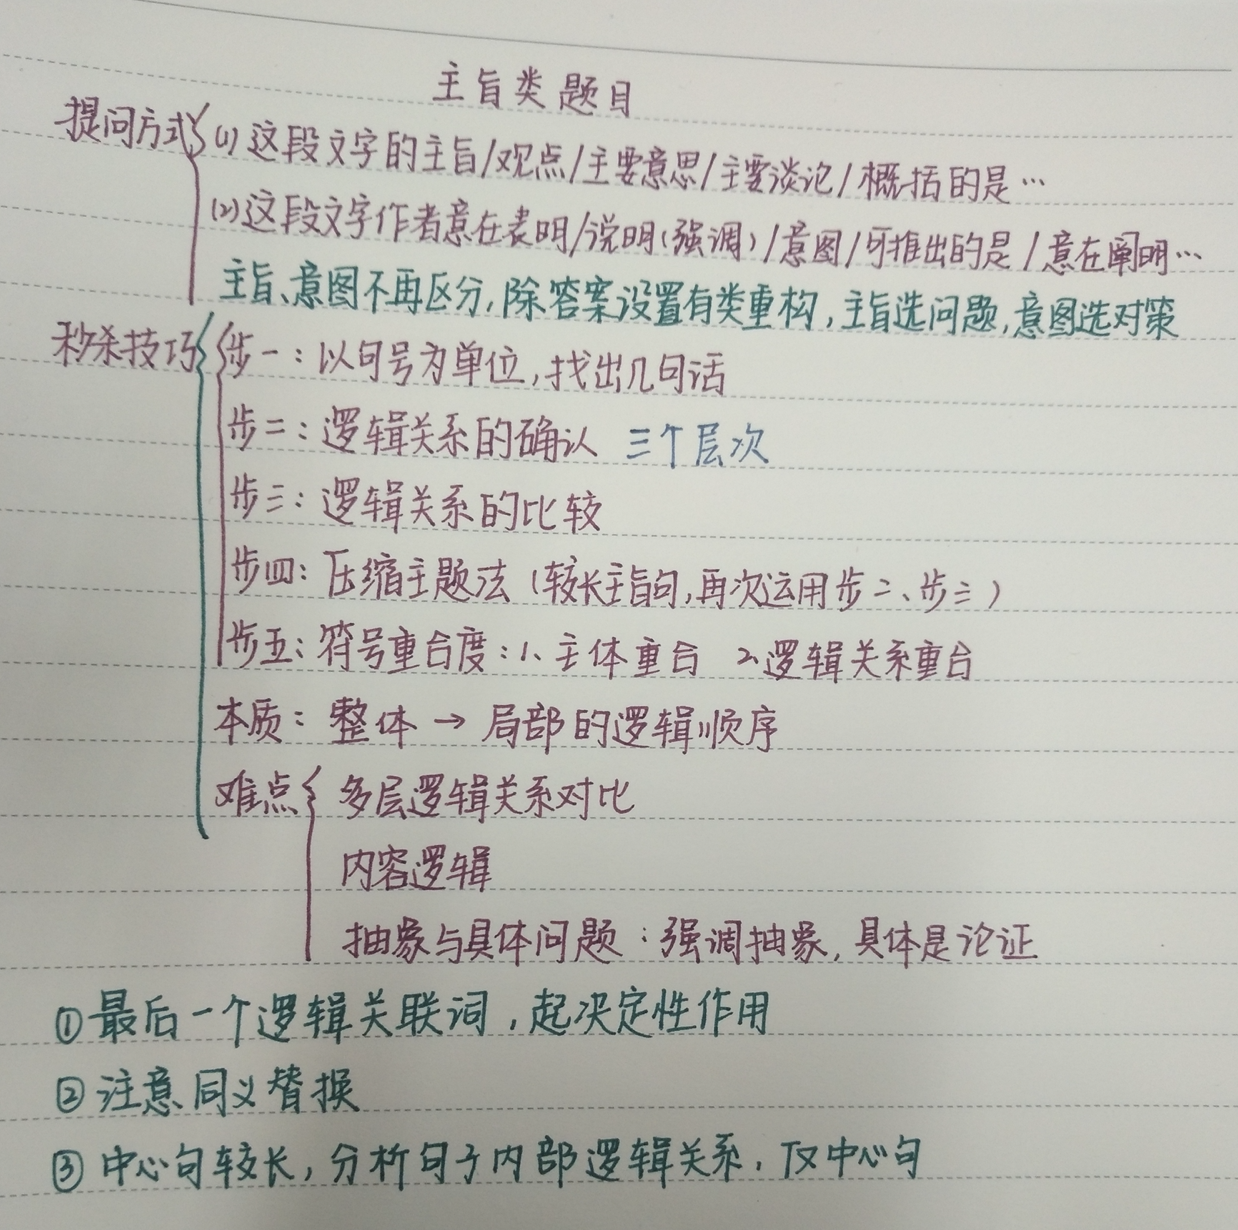 主旨类题目
提问方式{(1)这段文字的主旨/观点/主要意思/主要谈论/概括的是…
(2)这段文字作者意在表明/说明(强调)/意图/可推出的是/意在阐明…
主旨、意图不再区分,除答案设置有类重构,主旨选问题,意图选对策
秒杀技巧{{步一:以句号为单位,找出几句话
步二:逻辑关系的确认 三个层次
步三:逻辑关系的比较
步四:压缩主题法(较长主旨句,再次运用步二、步三)
步五:符号重合度:1、主体重合 2、逻辑关系重合
本质:整体→局部的逻辑顺序
难点{多层逻辑关系对比
内容逻辑
抽象与具体问题:强调抽象,具体是论证
①最后一个逻辑关联词,起决定性作用
②注意同义替换
③中心句较长,分析句子内部逻辑关系,仅中心句